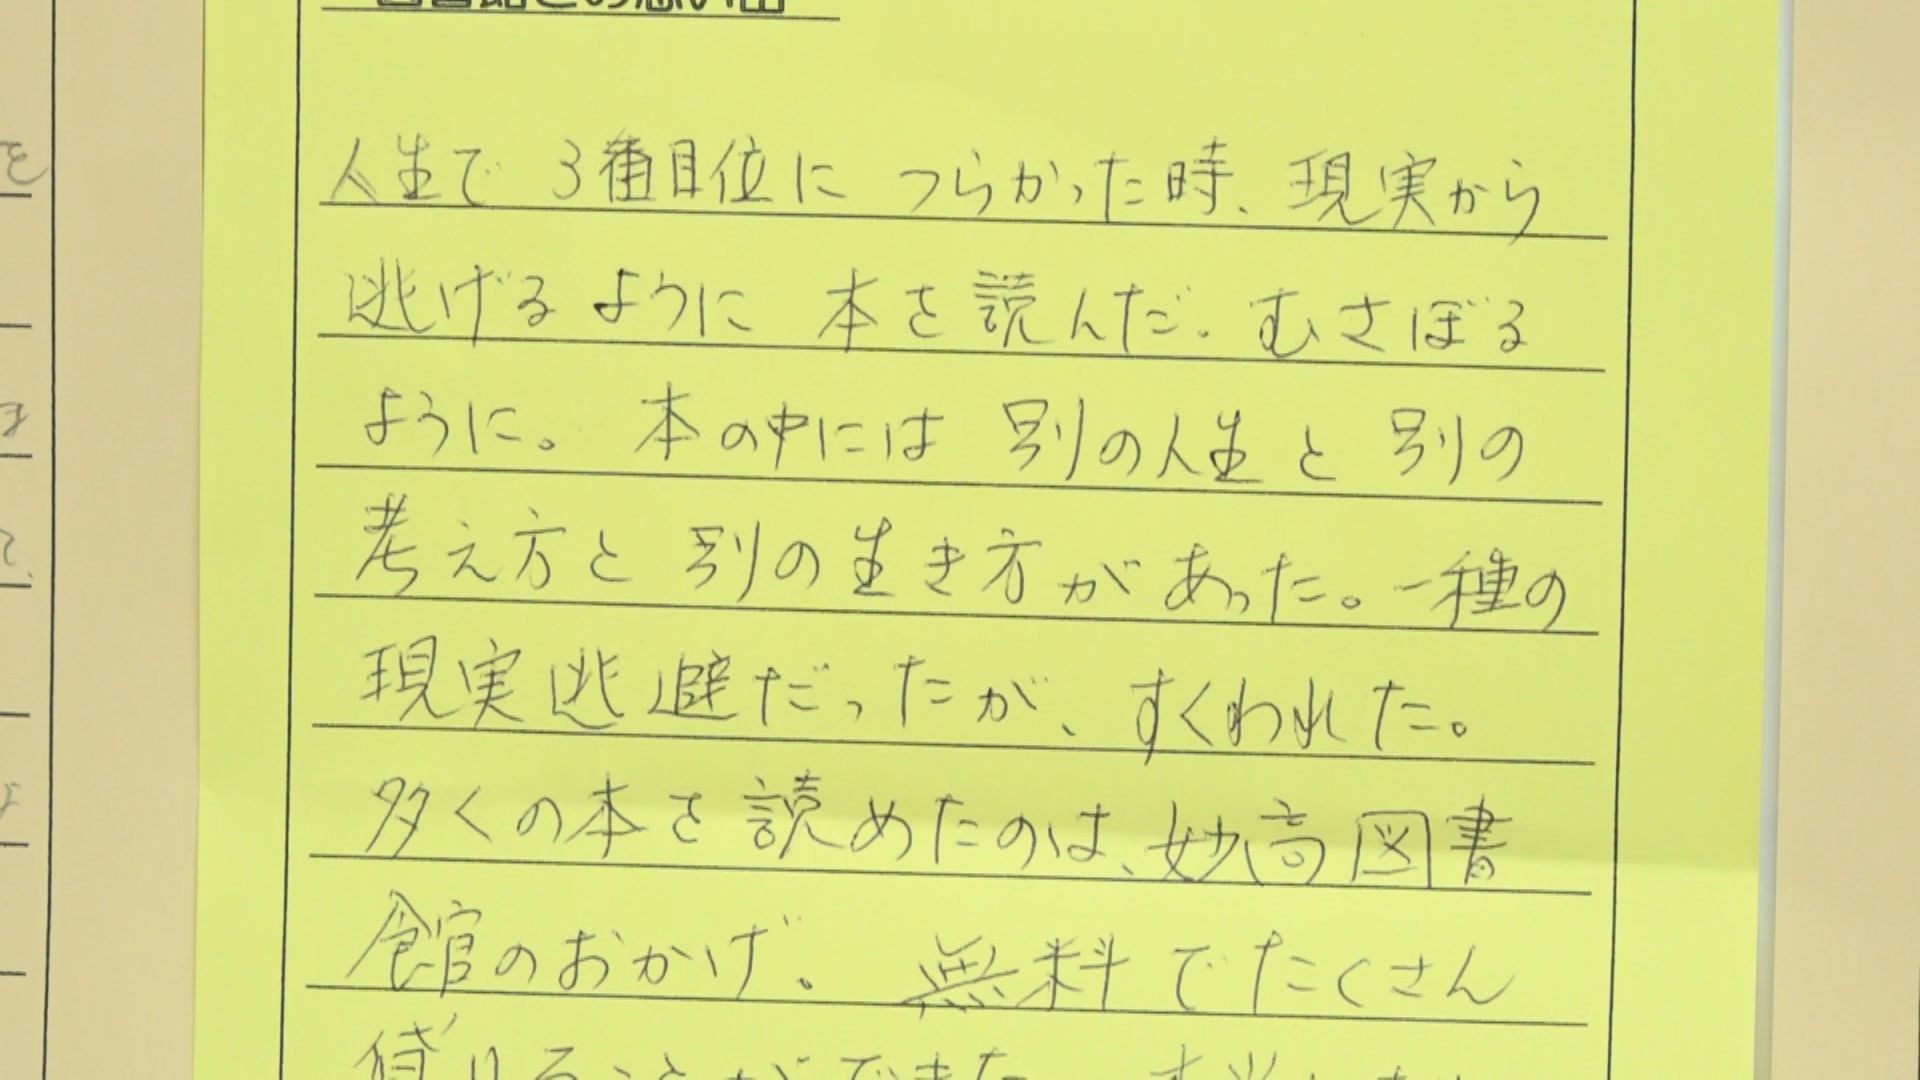 図書館との思い出
人生で 3番目位に つらかった時、現実から
逃げるように 本を読んだ。むさぼる
ように。 本の中には 別の人生と 別の
考え方と 別の生き方があった。一種の
現実逃避だったが、すくわれた。
多くの本を読めたのは、妙高図書
館のおかげ。 無料でたくさん
借りることができた